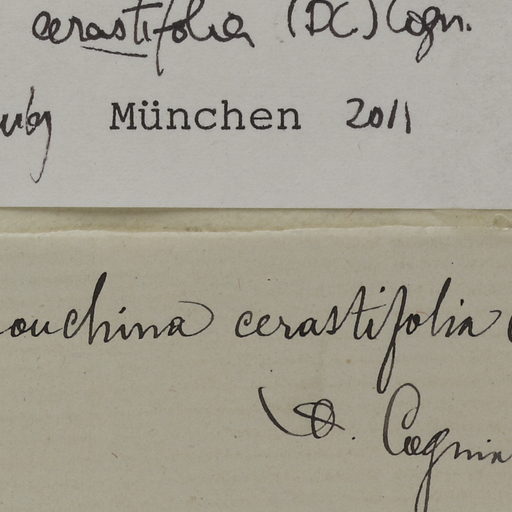 cerastifolia (DC) Cogn.
München 2011
ouchina cerastifolia (
Cognia